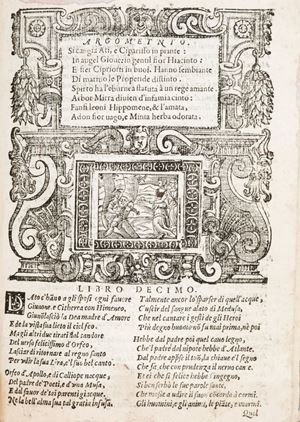 ARGOMETNIO.
Si cangia Ati, e Ciparisso in piante:
In augel Gioue; in gentil fior Hiacinto:
E fier Cipriotti in buoi. Hanno sembiante
Di marmo le Properide distinto.
Spirto ha l'eburnea statua à un rege amante.
Arbor Mirra diuien d'infamia cinto:
Fansi leoni Hippomene, & l'amata,
Adon fior uago, e Minta herba odorata.
LIBRO DECIMO.
DAto c'hāno a gli sposi ogni fauore
Giunone, e Citherea con Himeneo,
la Dea madre d'Amore
E de la vista sua lieto il ciel feo.
Ma gli altri due tirati dal candore
Del verso felicissimo d'Orfeo,
Lasciar di ritornare al regno santo
Per udir la sua Lira, e'l suo bel canto.
Orfeo d'Apollo, e di Calliope nacque,
Del padre de' Poeti, e d'una Musa,
E dal fauor de' toi parenti giacque
Ne la bell'alma sua tal gratia infusa,
Talmente ancor lo sparser di quell'acque,
Che'l ser del sangue alato di Medusa,
Che nel cantare i gesti de gli Heroi
Piu degno huom non fu mai prima, ne poi
Hebbe dal padre poi quel cauo legno,
Che'l padre del nipote hebbe d'Atlante.
Dal padre apprese il to la chiaue e'l segno
Che fà, che con prudenza il neruo can e.
Et ei che sì felice hebbe l'ingegno,
Si ben serbò le sue parole sante,
Che mosse a udire il suo
Gli huomini, gli animi, le pietre, e i
Qual